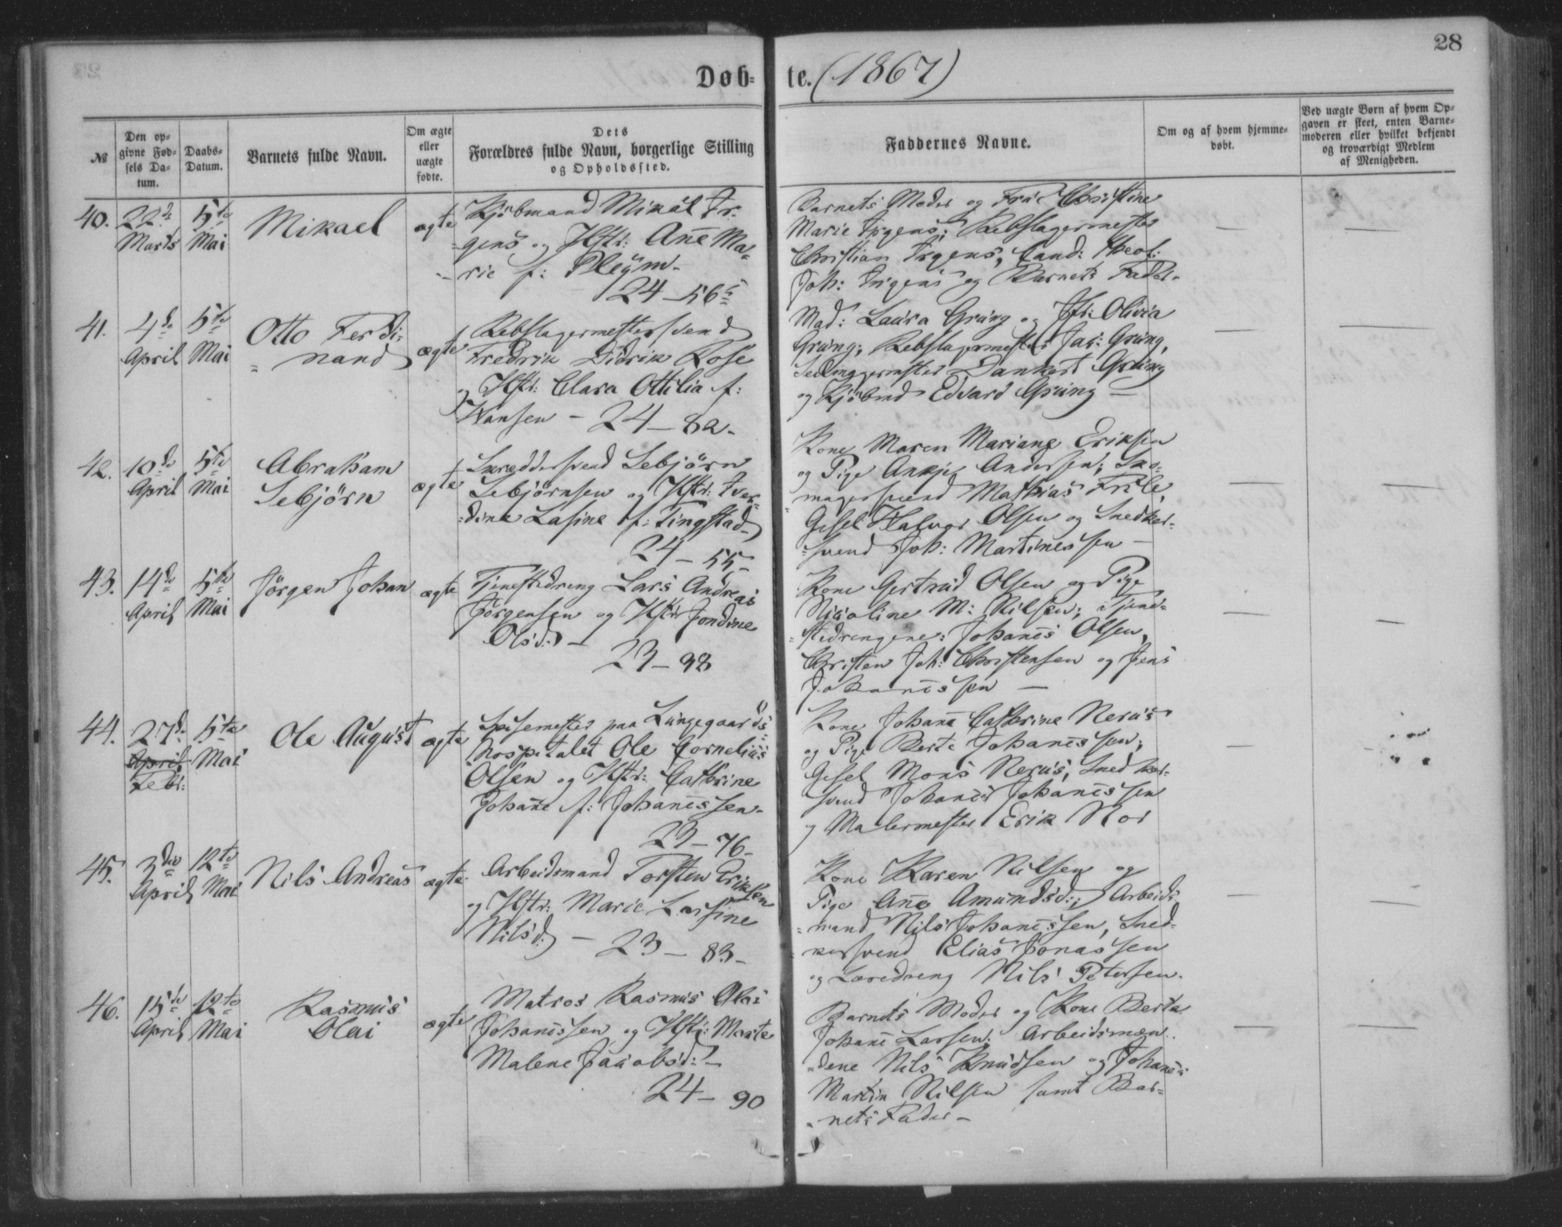 28
Døb- te. (1867)
№
Den op-
givne Fød-
sels Da-
tum.
Daabs-
Datum.
Barnets fulde Navn.
Om ægte
eller
uægte
fødte.
Dets
Forældres fulde Navn, borgerlige Stilling
og Opholdssted.
Faddernes Navne.
Om og af hvem hjemme-
døbt.
Ved uægte Børn af hvem Op-
gaven er skeet, enten Barne-
moderen eller hvilket bekjendt
og troværdigt Medlem
af Menigheden.
40. 22de Marts
5te Mai
Mikael
ægte
Kjøbmand Mikal Ir-
gens og Hstr: Añe Ma-
rie f: Pleÿm-
24-56
Barnets Moder og Frue Christine
Marie Irgens; Rebslagermester
Christian Irgens, Cand: theol:
Joh: Irgens og Barnets Fader-
41. 4de April
5te Mai
Otto Ferdi-
nand
ægte
Rebslagermestersvend
Fredrik Didrik Rose
og Hstr: Clara Ottilia f:
Hansen - 24-82-
Mad: Laura Grüng og Jfr: Olivia
Grüng; Rebslagermester Jac: Grüng,
Dankert Grüng
og Kjøbmd Edvard Grüng -
42. 10de April
5te Mai
Abraham
Sebjørn
ægte
Skræddersvend Sebjørn
Sebjørnsen og Hstr: Iver-
dine Lasine f: Tingstad-
24-55-
Kone Maren Mariane Eriksen
og Pige Andersen; Sko-
magersvend Mathias Friele,
Gesel Halvor Olsen og Snedker-
svend Joh: Martinessen -
43. 14de April
5te Mai
Jørgen Johan
ægte
Tjenestedreng Lars Andreas
Jørgensen og Hstr: Jondine
Olsd: -
23-98
Kone Gertrud Olsen og Pige
Nicoline M: Nilsen; Tjene-
stedrengene: Johañes Olsen,
Christen Joh: Christensen og Jens
Johañessen -
44. 27de April Febr:
5te Mai
Ole August
ægte
Spisemester paa Lungegaards-
hospitalet Ole Cornelius
Olsen og Hstr: Cathrine
Johañe f: Johañessen-
23-76-
Kone Johañe Cathrine Nerüs
og Pige Berte Johañessen;
Gesel Mons Nerüs, Snedker-
svend Johañes Johañessen
og Malermester Erik Nos
45. 3die April
12te Mai
Nils Andreas
ægte
Arbeidsmand Torsten Eriksen
og Hstr: Marie Larsine
Nilsd: - 23-83-
Kone Karen Nilsen og
Pige Añe Amundsd:; Arbeids-
mand Nils Johañessen, Sned-
kersvend Elias Jonassen
og Læredreng Nils Petersen.
46. 15de April
12te Mai
Rasmus
Olai
ægte
Matros Rasmus Olai
Johañessen og Hstr: Marte
Malene Jacobsd: -
24-90
Barnets Moder og Kone Berta
Johañe Larsen; Arbeidsmæn-
dene Nils Knudsen og Johañes
Martin Nilsen samt Bar-
nets Fader -